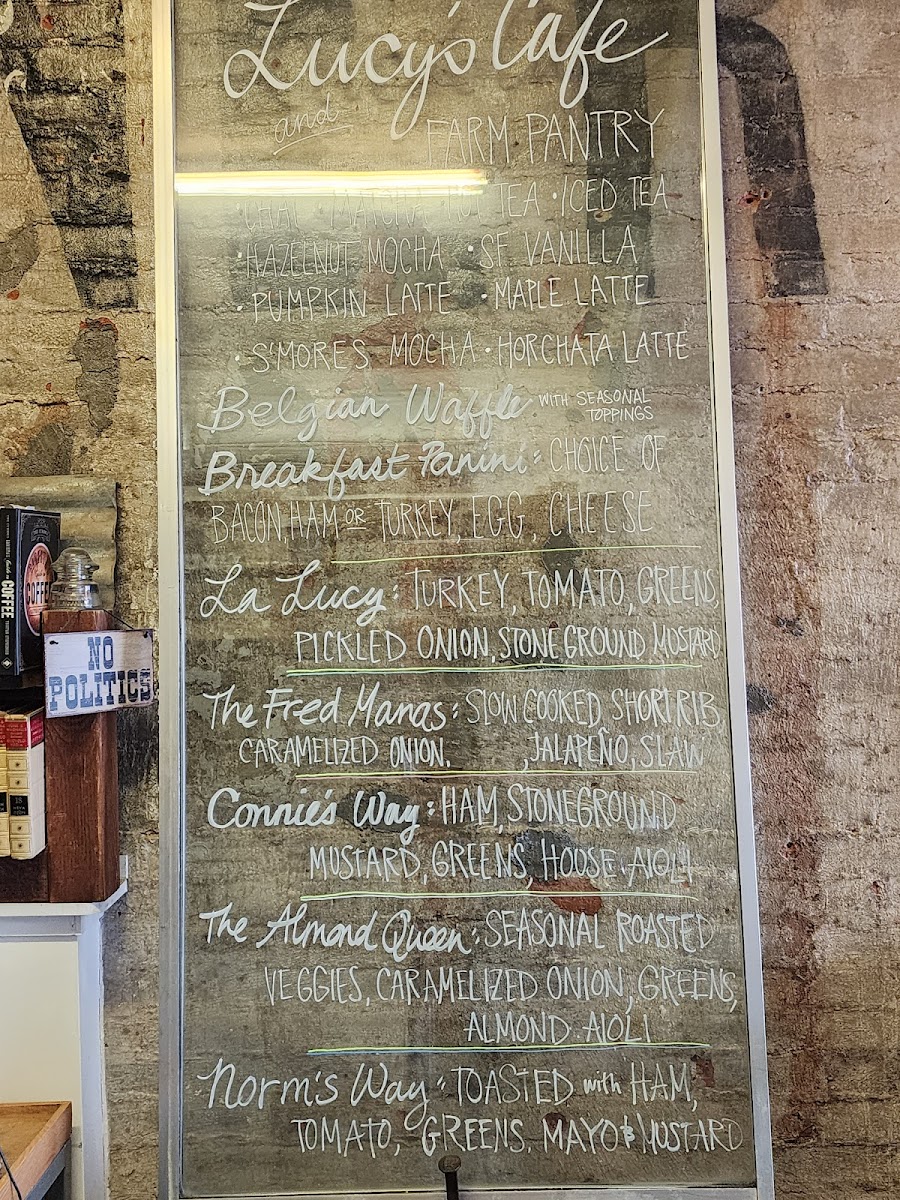 Lucy's Cafe
and
FARM PANTRY
· CHAI · MATCHA · HOT TEA · ICED TEA
· HAZELNUT MOCHA · SF VANILLA
· PUMPKIN LATTE · MAPLE LATTE
· S'MORES MOCHA · HORCHATA LATTE
Belgian Waffle WITH SEASONAL
TOPPINGS
Breakfast Panini: CHOICE OF
BACON, HAM OR TURKEY, EGG, CHEESE
La Lucy: TURKEY, TOMATO, GREENS,
PICKLED ONION, STONE GROUND MUSTARD
The Fred Manas: SLOW COOKED SHORTRIB
CARAMELIZED ONION, , JALAPEÑO, SLAW
Connie's Way: HAM, STONEGROUND
MUSTARD, GREENS, HOUSE AIOLI
The Almond Queen: SEASONAL ROASTED
VEGGIES, CARAMELIZED ONION, GREENS,
ALMOND AIOLI
Norm's Way: TOASTED with HAM,
TOMATO, GREENS, MAYO & MUSTARD
COFFEE
COFFEE
NO
POLITICS
18